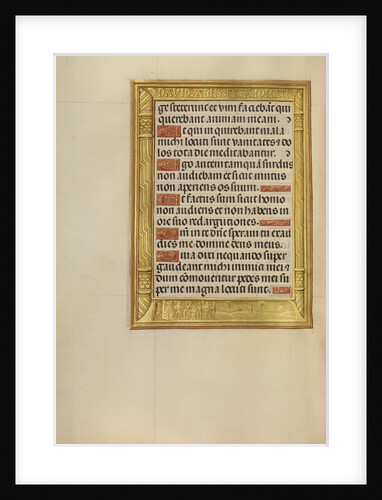 DAVID
ge steterunt et vim faciebāt qui
querebant animam meam.
Et qui inquirebant mala
michi locuti sunt vanitates & do
los tota die meditabantur.
Ego autem tamquā surdus
non audiebam et sicut mutus
non aperiens os suum.
Et factus sum sicut homo
non audiens et non habens in
ore suo redargutiones.
Qm̄ in te dn̄e speravi tu exau
dies me domine deus meus.
Quia dixi nequando super
gaudeant michi inimici mei &
dum cōmoventur pedes mei su
per me magna locuti sunt.